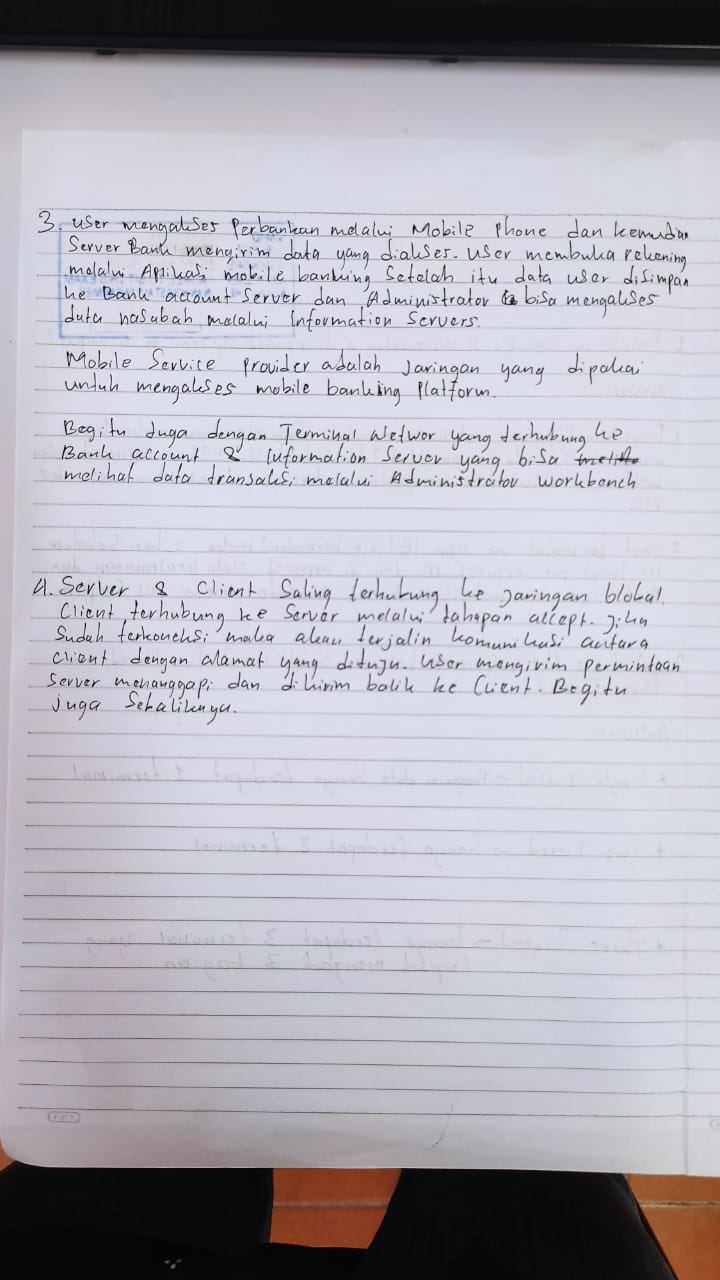 3. User mengakses Perbankan melalui Mobile Phone dan kemudian
Server Bank mengirim data yang diakses. User membuka rekening
melalui Aplikasi mobile banking Setelah itu data user disimpan
ke Bank account Server dan Administrator bisa mengakses
data nasabah melalui Information Servers.
Mobile Service provider adalah Jaringan yang dipakai
untuk mengakses mobile banking Platform.
Begitu Juga dengan Terminal Networ yang terhubung ke
Bank account & Information Server yang bisa
melihat data transaksi melalui Administrator workbench
4. Server & Client Saling terhubung ke Jaringan blokal.
Client terhubung ke Server melalui tahapan accept. Jika
Sudah terkoneksi maka akan terjalin komunikasi antara
Client dengan alamat yang dituju. User mengirim permintaan
Server menanggapi dan dikirim balik ke Client. Begitu
juga Sebaliknya.